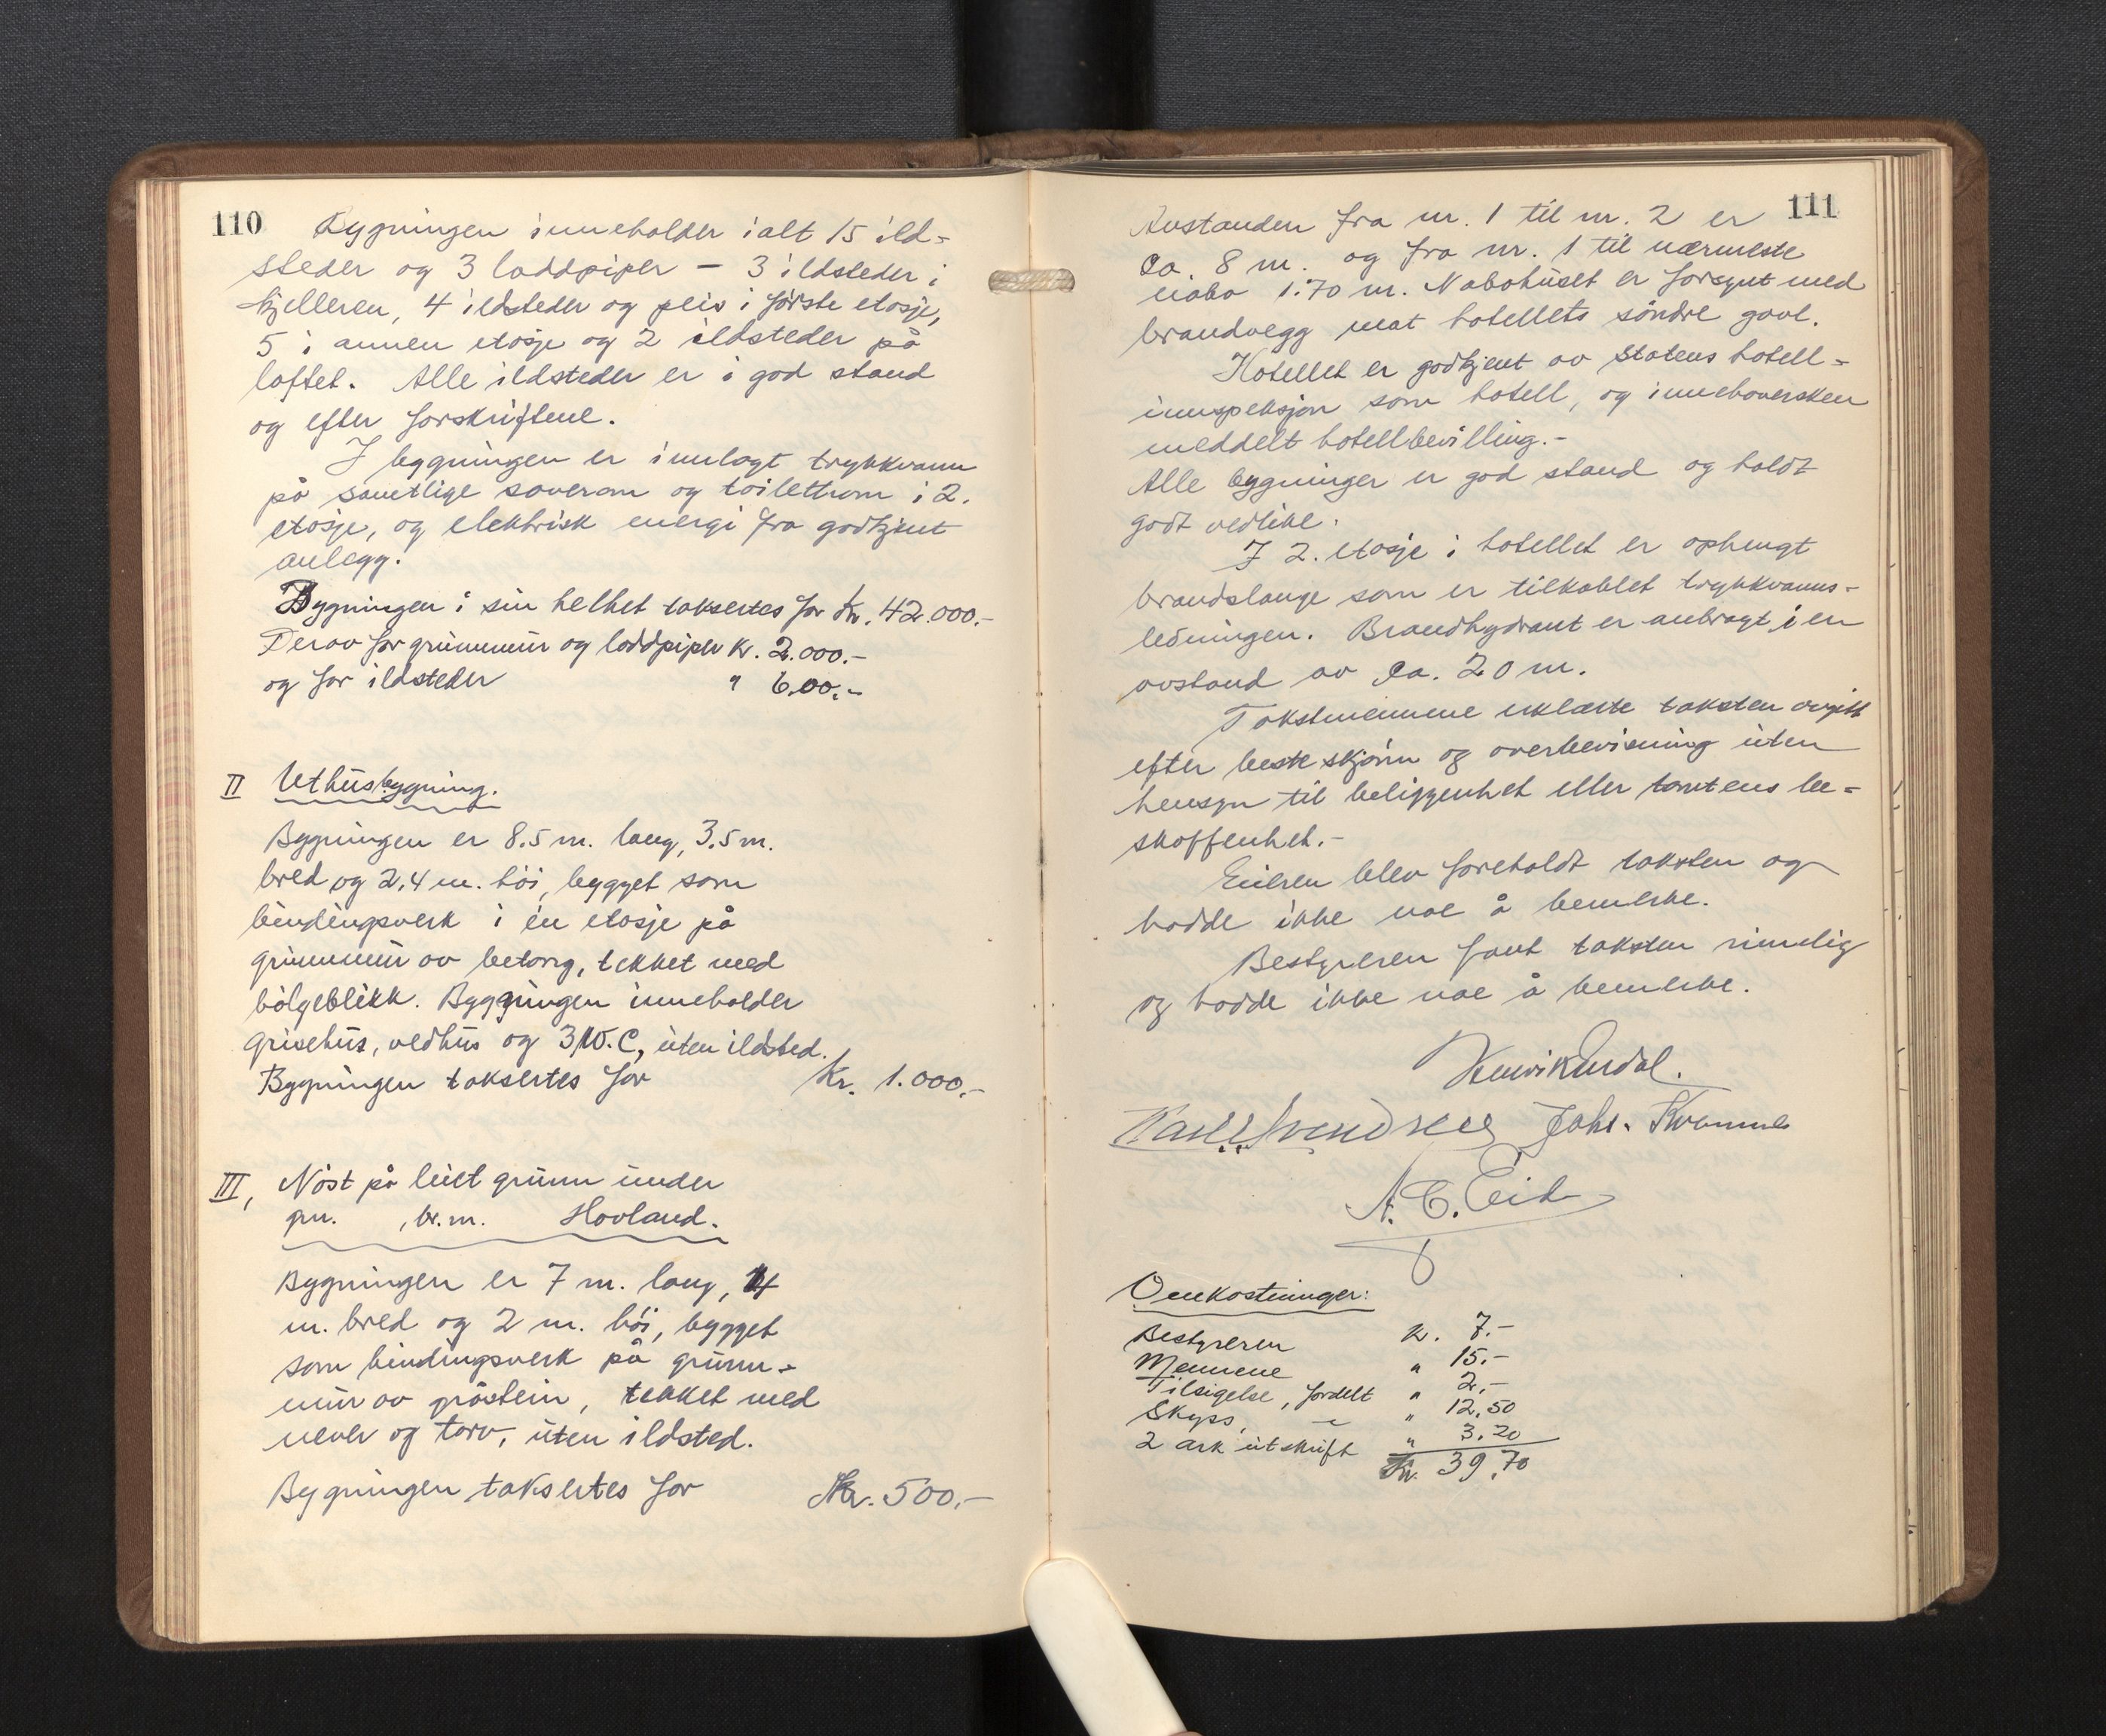 110
Bygningen inneholder ialt 15 ild=
steder og 3 loddpiper – 3 ildsteder i
kjelleren, 4 ildsteder og peis i første etasje,
5 i annen etasje og 2 ildsteder på
loftet. Alle ildsteder er i god stand
og efter forskriftene.
I bygningen er innlagt trykkvann
på samtlige soverom og toilettrom i 2.
etasje, og elektrisk energi fra godkjent
anlegg.
Bygningen i sin helhet taksertes for Kr. 42.000.-
Derav for grunnmur og loddpiper Kr. 2.000.-
og for ildsteder " 600.-
II Uthusbygning.
Bygningen er 8.5 m. lang, 3.5 m.
bred og 2.4 m. høi, bygget som
bindingsverk i én etasje på
grunnmur av betong, tekket med
bølgeblikk. Byggningen inneholder
grisehus, vedhus og 3 W.C, uten ildsted.
Bygningen taksertes for Kr. 1.000.-
III, Nøst på leiet grunn under
gn. , br.nr. Hovland.
Bygningen er 7 m. lang, 4
m. bred og 2 m. høi, bygget
som bindingsverk på grunn-
mur av gråstein, tekket med
never og torv, uten ildsted.
Bygningen taksertes for Kr. 500.-
111
Avstanden fra nr. 1 til nr. 2 er
ca. 8 m. og fra nr. 1 til nærmeste
nabo 1.70 m. Nabohuset er forsynt med
brandvegg mot hotellets søndre gavl.
Hotellet er godkjent av Statens hotell=
innspeksjon som hotell, og innehaversken
meddelt hotellbevilling.-
Alle bygninger er god stand og holdt
godt vedlike.
I 2. etasje i hotellet er ophengt
brandslange som er tilkoblet trykkvanns-
ledningen. Brandhydrant er anbragt i en
avstand av ca. 20 m.
Takstmennene erklærte taksten avgitt
efter beste skjønn og overbevisning uten
hensyn til beliggenhet eller tomtens be=
skaffenhet.-
Eieren blev foreholdt taksten og
hadde ikke noe å bemerke.
Bestyreren fant taksten rimelig
og hadde ikke noe å bemerke.
Henrik Urdal.
Karl Svendsen Johs. Kvamme
A. C. Eid
Omkostninger:
Bestyreren Kr. 7.-
Mennene " 15.-
Tilsigelse, fordelt " 2.-
Skyss, – " 12.50
2 ark utskrift " 3.20
Kr. 39.70